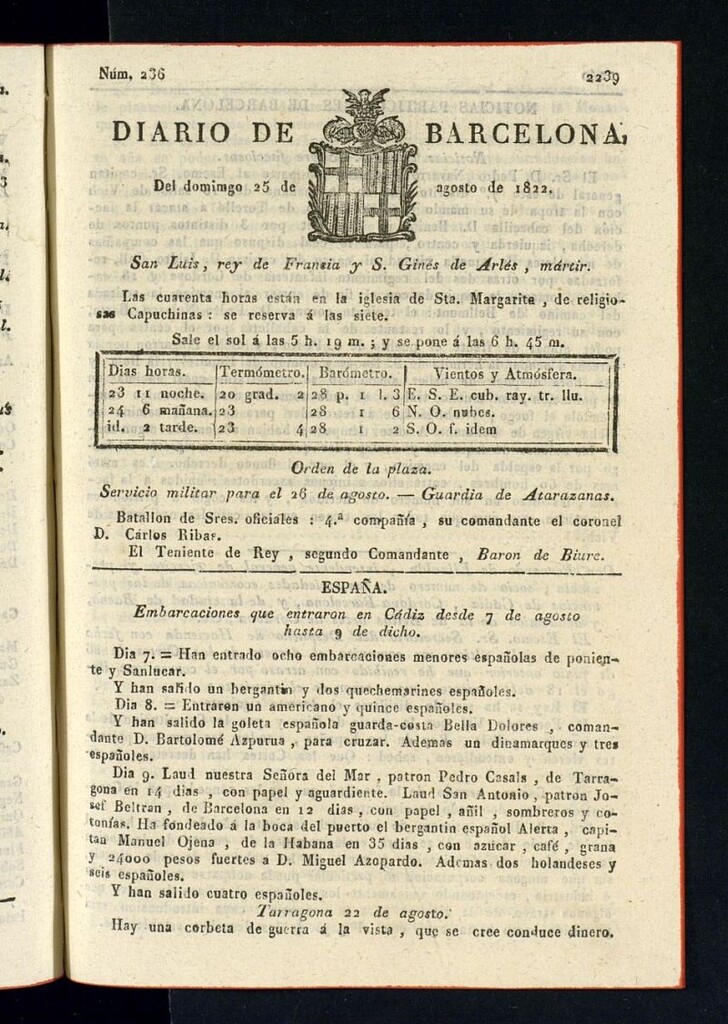 Núm. 236 2239
DIARIO DE BARCELONA,
Del domingo 25 de agosto de 1822.
San Luis, rey de Francia y S. Ginés de Arlés, mártir.
Las cuarenta horas están en la iglesia de Sta. Margarita, de religio-
sas Capuchinas: se reserva á las siete.
Sale el sol á las 5 h. 19 m.; y se pone á las 6 h. 45 m.
Dias horas. Termómetro. Barómetro. Vientos y Atmósfera.
23 11 noche. 20 grad. 2 28 p. 1 l. 3 E. S. E. cub. ray. tr. llu.
24 6 mañana. 23 28 1 6 N. O. nubes.
id. 2 tarde. 23 4 28 1 2 S. O. f. idem
Orden de la plaza.
Servicio militar para el 26 de agosto. — Guardia de Atarazanas.
Batallon de Sres. oficiales: 4.ª compañía, su comandante el coronel
D. Cárlos Ribas.
El Teniente de Rey, segundo Comandante, Baron de Biure.
ESPAÑA.
Embarcaciones que entraron en Cádiz desde 7 de agosto
hasta 9 de dicho.
Dia 7. = Han entrado ocho embarcaciones menores españolas de ponien-
te y Sanlucar.
Y han salido un bergantin y dos quechemarines españoles.
Dia 8. = Entraron un americano y quince españoles.
Y han salido la goleta española guarda-costa Bella Dolores, coman-
dante D. Bartolomé Azpurua, para cruzar. Ademas un dinamarques y tres
españoles.
Dia 9. Laud nuestra Señora del Mar, patron Pedro Casals, de Tarra-
gona en 14 dias, con papel y aguardiente. Laud San Antonio, patron Jo-
sef Beltran, de Barcelona en 12 dias, con papel, añil, sombreros y co-
tonías. Ha fondeado á la boca del puerto el bergantin español Alerta, capi-
tan Manuel Ojena, de la Habana en 35 dias, con azucar, café, grana
y 24000 pesos fuertes á D. Miguel Azopardo. Ademas dos holandeses y
seis españoles.
Y han salido cuatro españoles.
Tarragona 22 de agosto.
Hay una corbeta de guerra á la vista, que se cree conduce dinero.